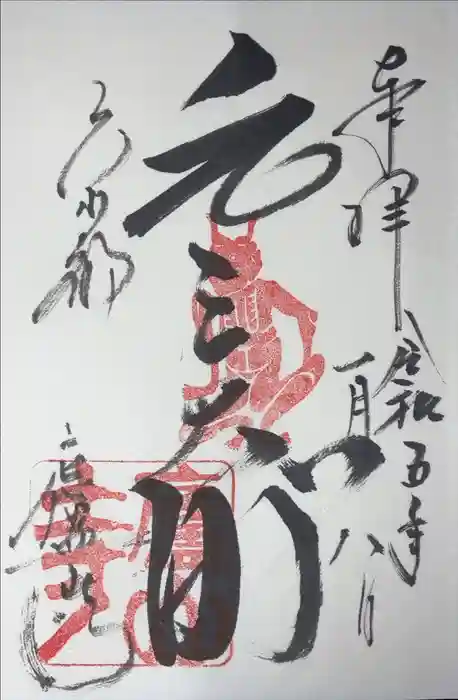 奉拝
令和五年
一月八日
元三大師
廬山寺